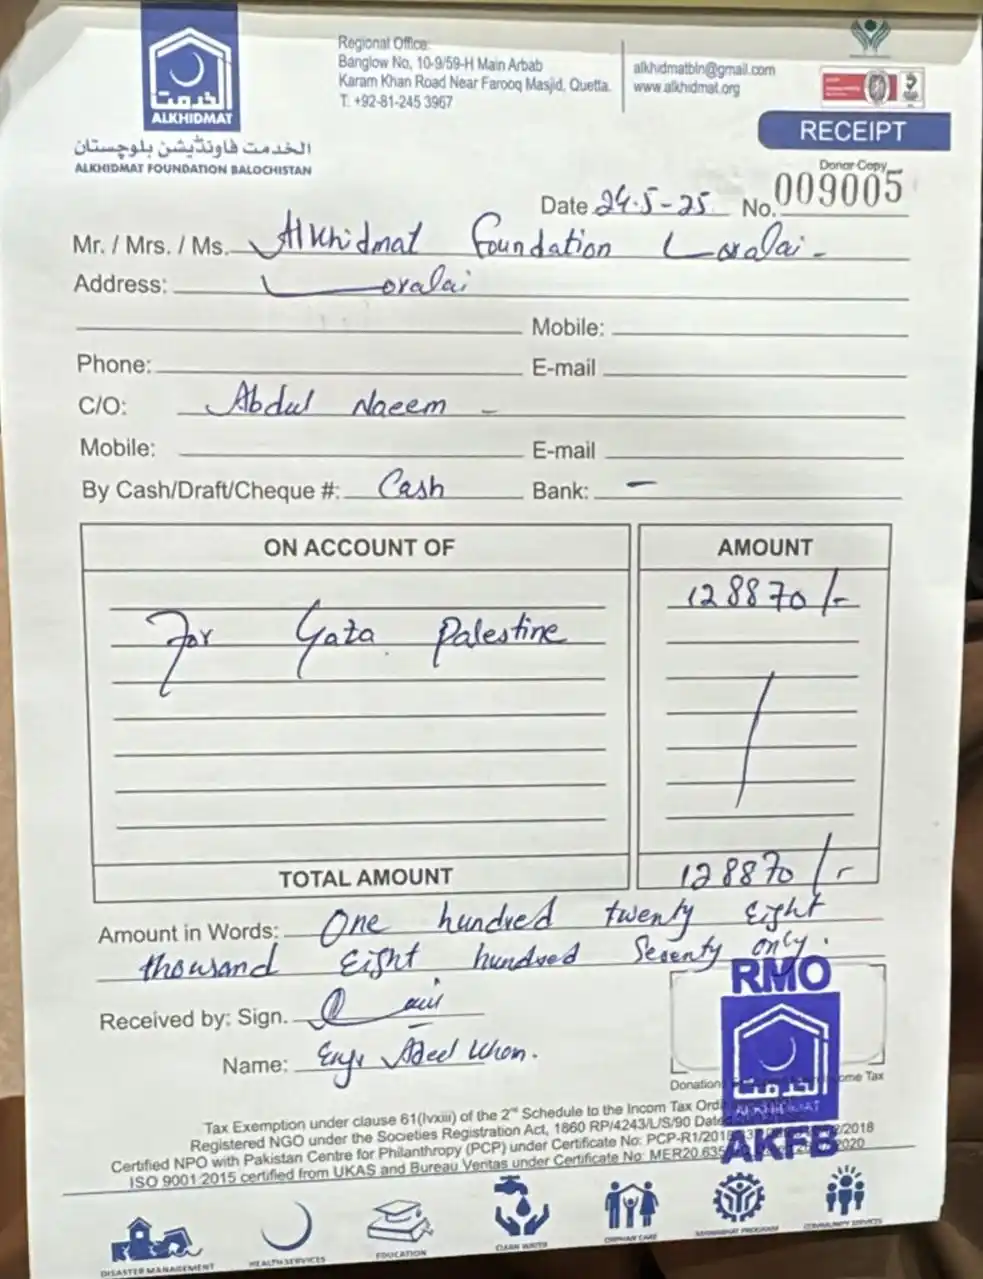 الخدمت
ALKHIDMAT
الخدمت فاؤنڈیشن بلوچستان
ALKHIDMAT FOUNDATION BALOCHISTAN
Regional Office:
Banglow No, 10-9/59-H Main Arbab
Karam Khan Road Near Farooq Masjid, Quetta.
T. +92-81-245 3967
alkhidmatbln@gmail.com
www.alkhidmat.org
RECEIPT
Donor Copy
Date 24-5-25 No. 009005
Mr. / Mrs. / Ms. Alkhidmat Foundation Loralai -
Address: Loralai
Mobile:
Phone: E-mail
C/O: Abdul Naeem -
Mobile: E-mail
By Cash/Draft/Cheque #: Cash Bank: -
ON ACCOUNT OF AMOUNT
128870/-
For Gaza Palestine
TOTAL AMOUNT 128870/-
Amount in Words: One hundred twenty Eight
thousand Eight hundred Seventy only.
Received by: Sign.
Name: Engr Adeel
RMO
الخدمت
ALKHIDMAT
AKFB
Donation Income Tax
Tax Exemption under clause 61(lvxiii) of the 2nd Schedule to the Incom Tax
Registered NGO under the Societies Registration Act, 1860 RP/4243/L/S/90 Dated
Certified NPO with Pakistan Centre for Philanthropy (PCP) under Certificate No: PCP-R1/201 /2018
ISO 9001:2015 certified from UKAS and Bureau Veritas under Certificate No: MER20.635 2020
DISASTER MANAGEMENT
HEALTH SERVICES
EDUCATION
CLEAN WATER
ORPHAN CARE
MAWAKHAT PROGRAM
COMMUNITY SERVICES